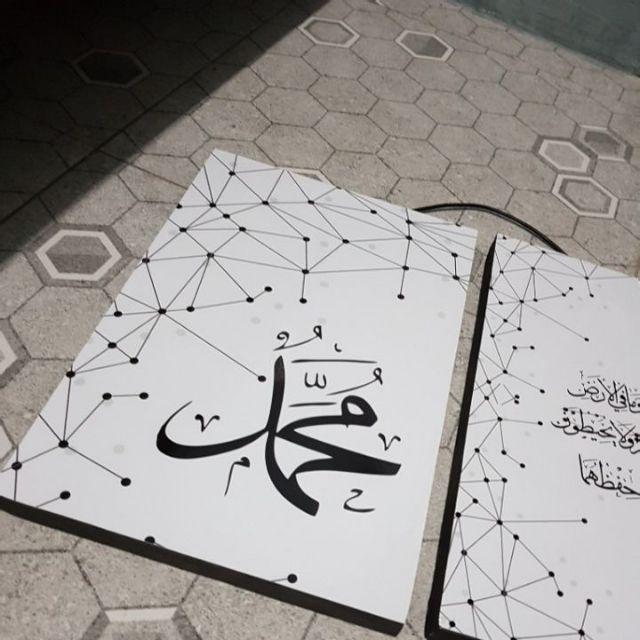 محمد
ما في الأرض
ولا يحيطون
حفظهما